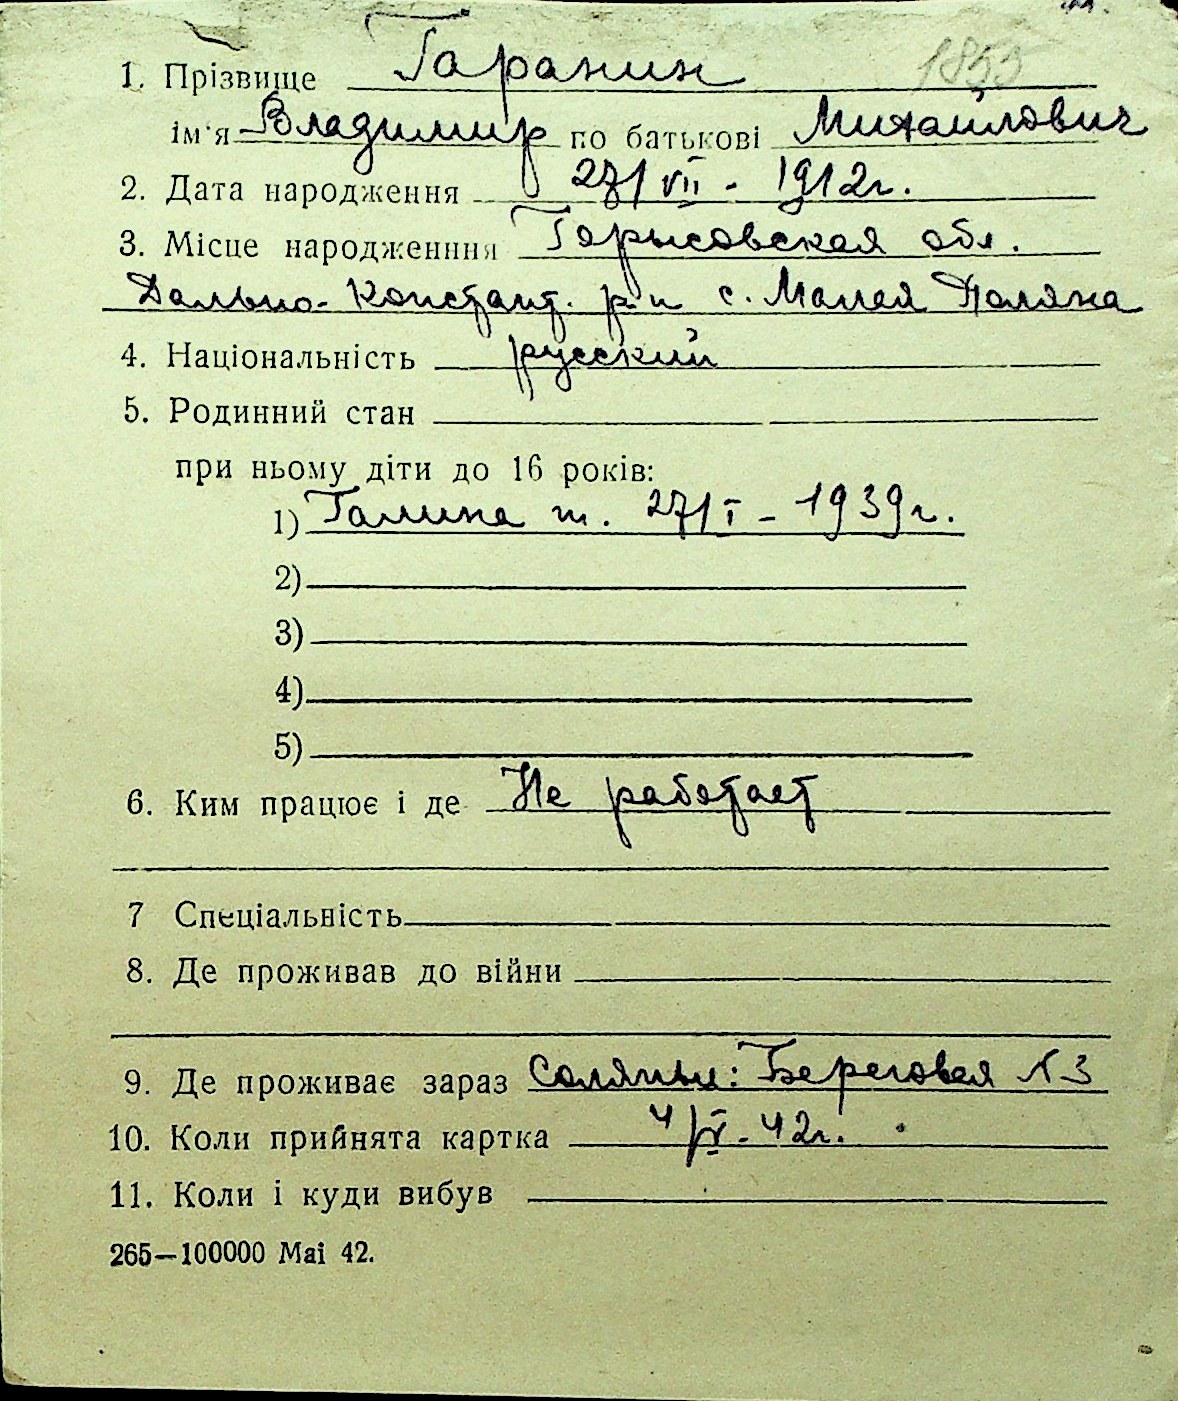 1853
1. Прізвище Гаранин
ім'я Владимир по батькові Михайлович
2. Дата народження 27/VII - 1912г.
3. Місце народженння Горьковская обл.
Дально-Констант. р-н с. Малая Поляна
4. Національність русский
5. Родинний стан
при ньому діти до 16 років:
1) Галина т. 27/I - 1939г.
2)
3)
4)
5)
6. Ким працює і де Не работает
7 Спеціальність
8. Де проживав до війни
9. Де проживає зараз Соляные: Береговая N 3
10. Коли прийнята картка 4/V-42г.
11. Коли і куди вибув
265—100000 Mai 42.